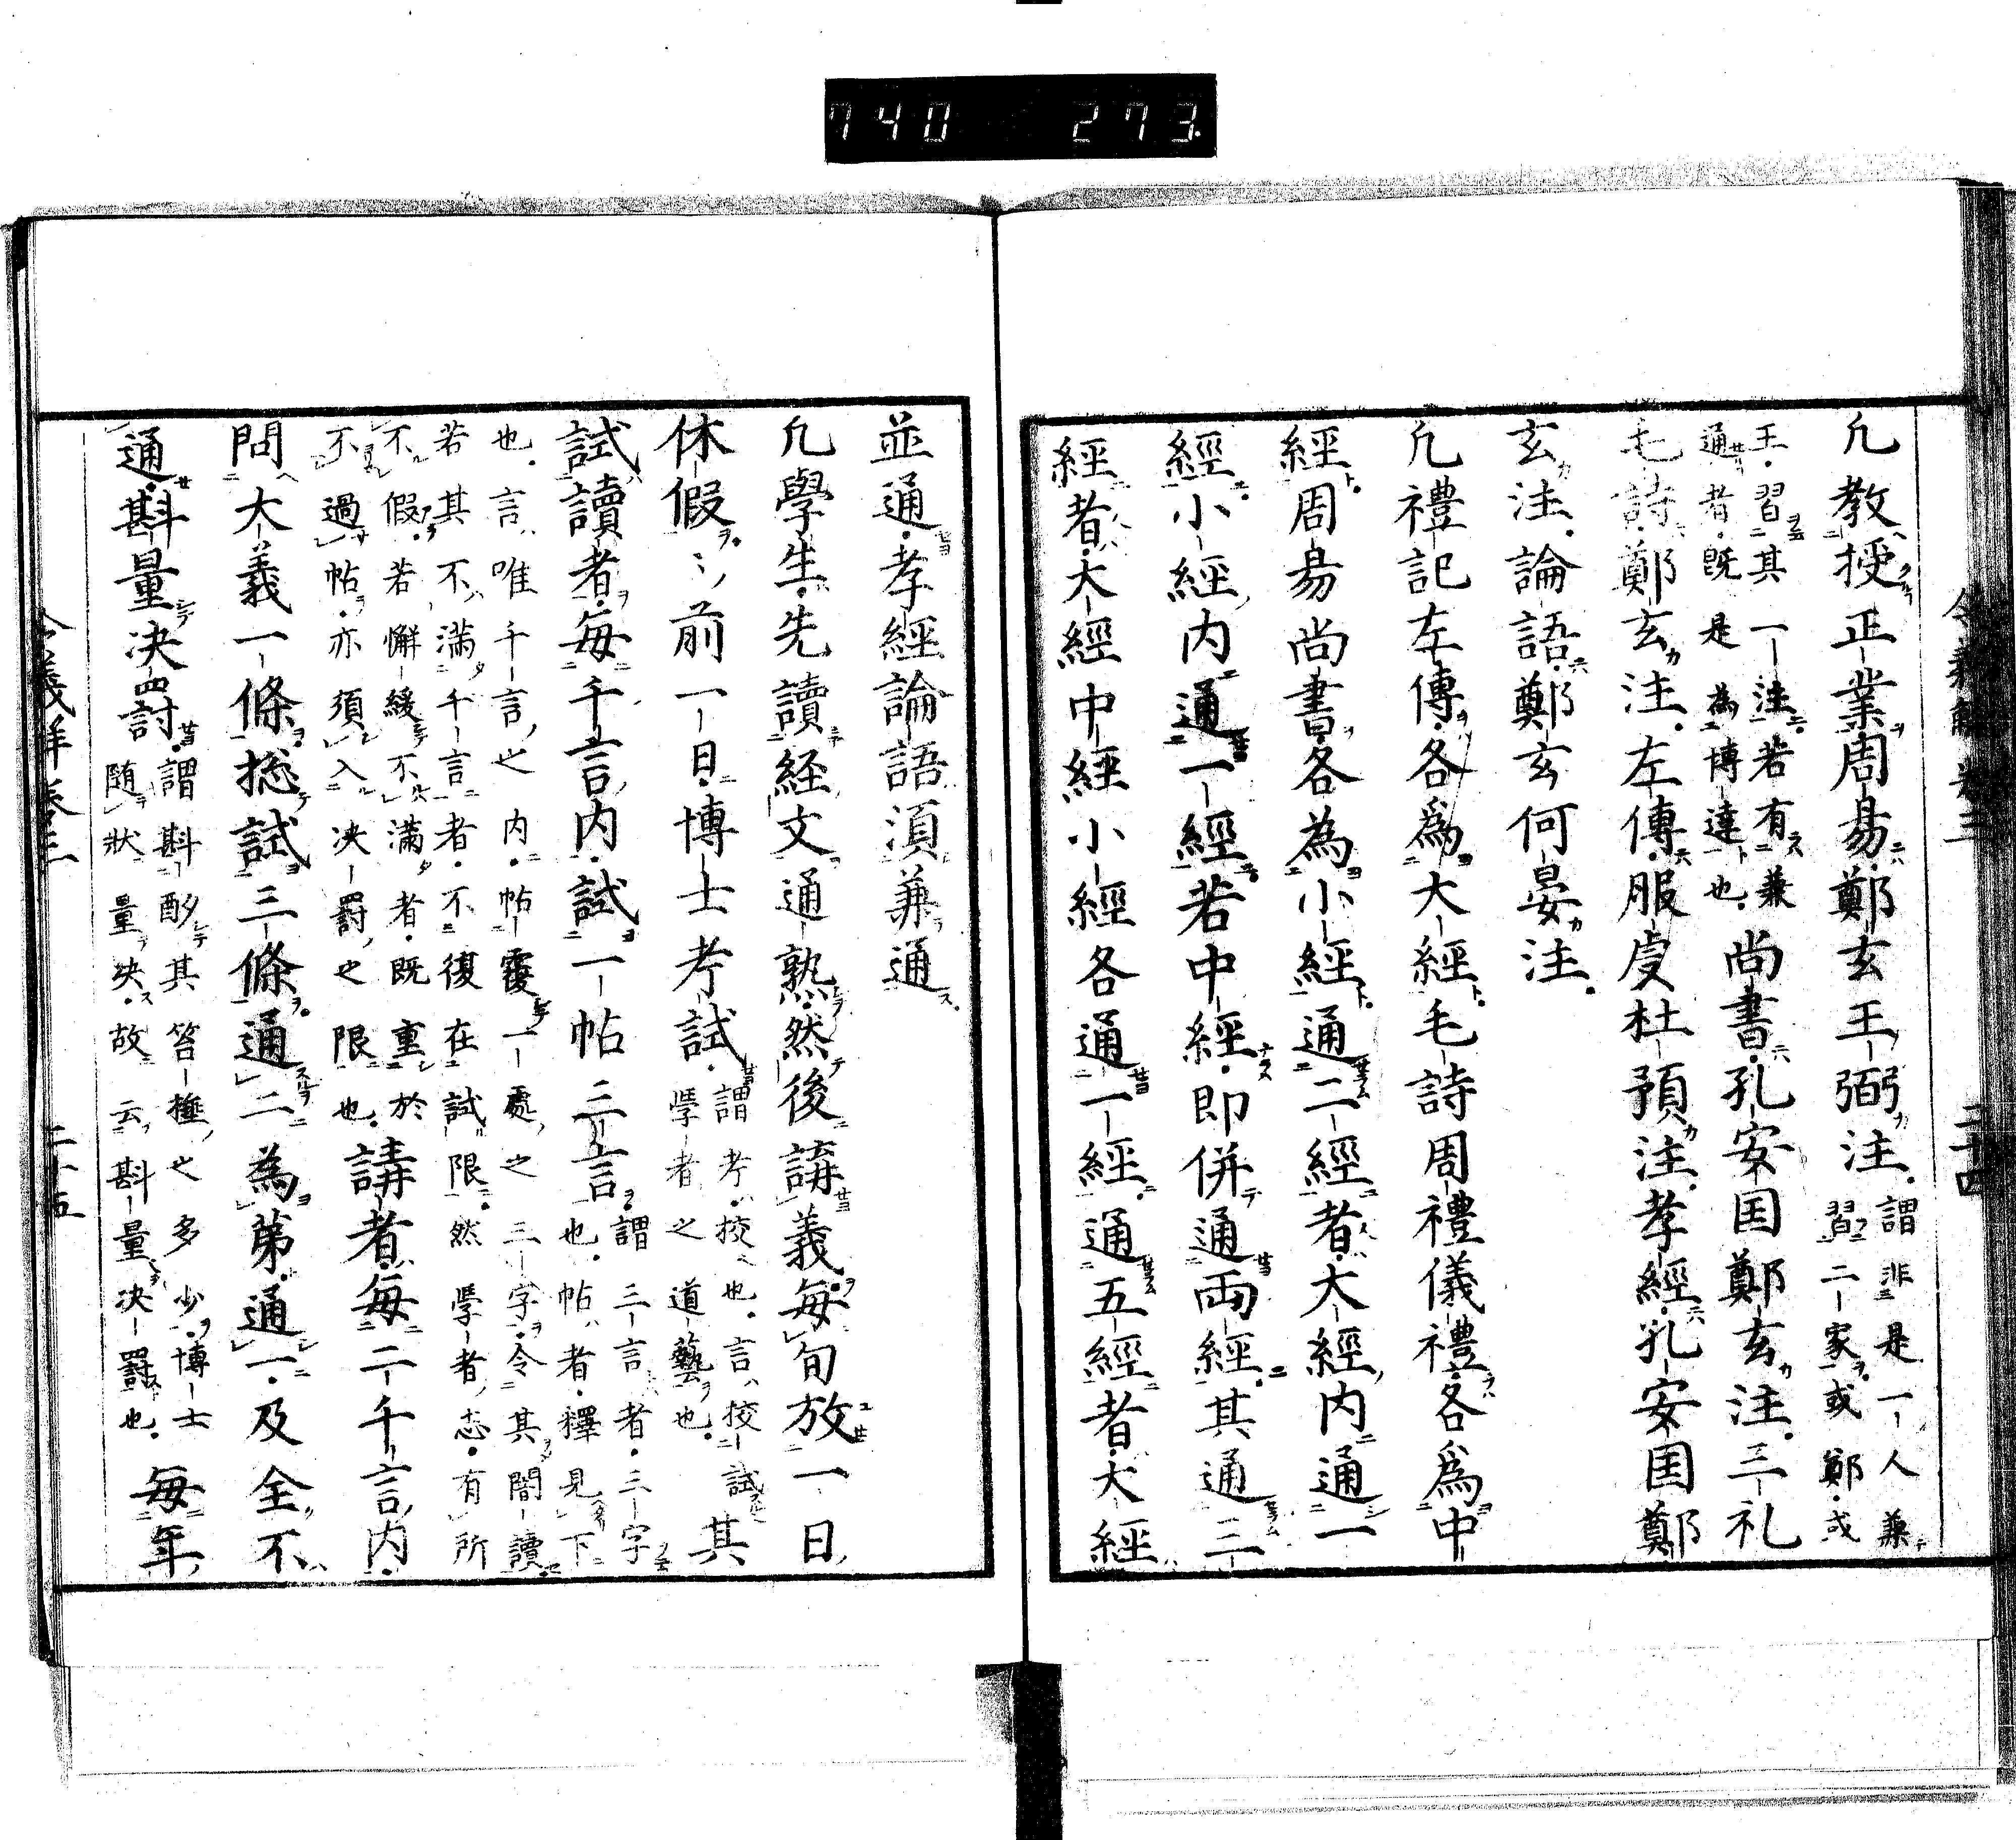 740 273
凢教授正業周昜鄭玄王弼注謂非是一人兼
習二家或鄭或
王習其一注若有兼
通者既是為博達也尚書孔安国鄭玄注三礼
毛詩鄭玄注左傳服虔杜預注孝經孔安国鄭
玄注論語鄭玄何晏注
凢禮記左傳各爲大經毛詩周禮儀禮各爲中
經周昜尚書各為小經通二經者大經内通一
經小經内通一經若中經即併通両經其通三
經者大經中經小經各通一經通五經者大經
並通孝經論語湏兼通
凢學生先讀経文通熟然後講義毎旬放一日
休假〻前一日博士考試謂考挍也言挍試
學者之道藝也其
試讀者毎千言内試一帖三言謂三言者三字
也帖者釋見下
也言唯千言之内帖覆一處之三字令其闇讀
若其不滿千言者不復在試限然學者志有所
不假若懈緩不滿者既重於
不過帖亦須入决罸之限也講者毎二千言内
問大義一條捴試三條通二為第通一及全不
通斟量决罸謂斟酌其笞捶之多少博士
随状量决故云斟量决罸也毎年
令義解卷三
二十四
二十五